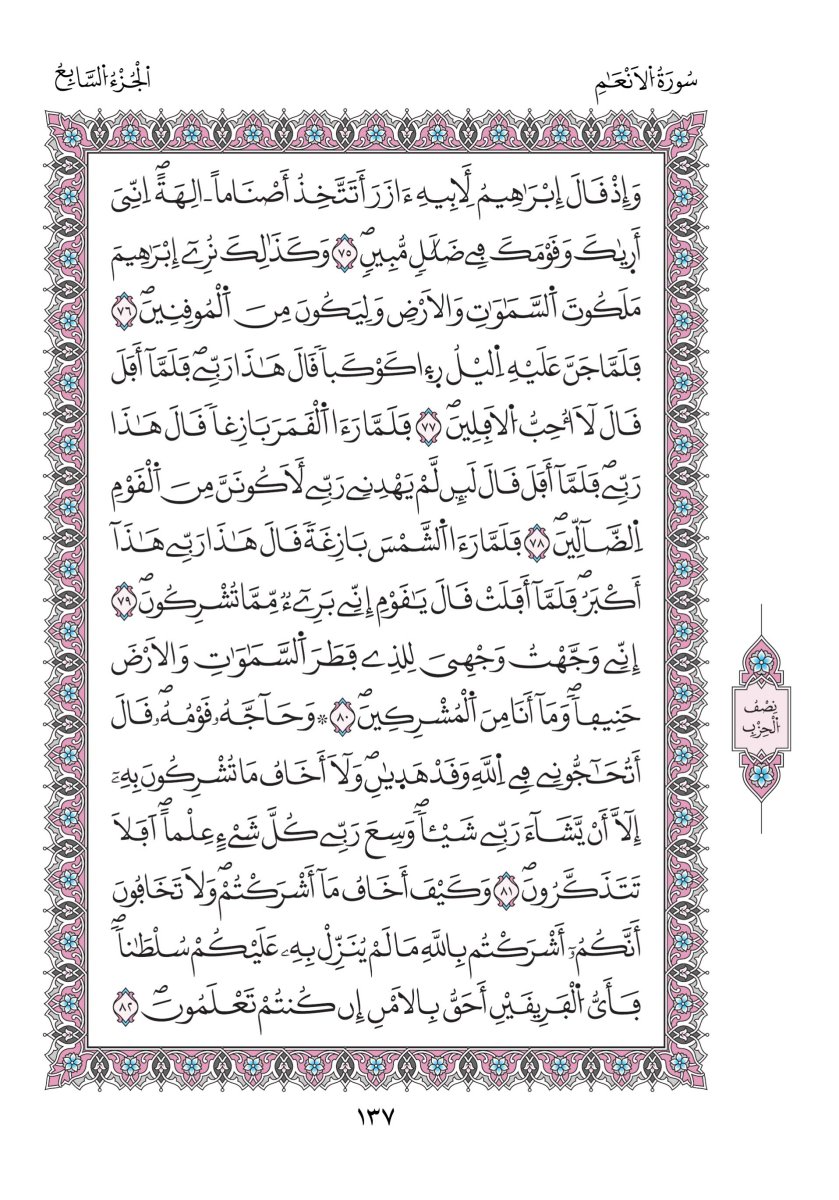 سُورَةُ اُ۬لَانْعَٰمِ
اَ۬لْجُزْءُ اُ۬لسَّابِعُ
وَإِذْ قَالَ إِبْرَٰهِيمُ لِأَبِيهِ ءَازَرَ أَتَتَّخِذُ أَصْنَاماً ـ اٰلِهَةًۖ اِنِّيَ
أَر۪ىٰكَ وَقَوْمَكَ فِے ضَلَٰلٖ مُّبِينٖۖ ٧٥ وَكَذَٰلِكَ نُرِےٓ إِبْرَٰهِيمَ
مَلَكُوتَ اَ۬لسَّمَٰوَٰتِ وَالَارْضِ وَلِيَكُونَ مِنَ اَ۬لْمُوقِنِينَۖ ٧٦
فَلَمَّا جَنَّ عَلَيْهِ اِ۬ليْلُ ر۪ء۪ا كَوْكَباٗ قَالَ هَٰذَا رَبِّےۖ فَلَمَّآ أَفَلَ
قَالَ لَآ أُحِبُّ اُ۬لَافِلِينَۖ ٧٧ فَلَمَّا رَءَا اَ۬لْقَمَرَ بَازِغاٗ قَالَ هَٰذَا
رَبِّےۖ فَلَمَّآ أَفَلَ قَالَ لَئِن لَّمْ يَهْدِنِے رَبِّے لَأَكُونَنَّ مِنَ اَ۬لْقَوْمِ
اِ۬لضَّآلِّينَۖ ٧٨ فَلَمَّا رَءَا اَ۬لشَّمْسَ بَازِغَةٗ قَالَ هَٰذَا رَبِّے هَٰذَآ
أَكْبَرُۖ فَلَمَّآ أَفَلَتْ قَالَ يَٰقَوْمِ إِنِّے بَرِےٓءٞ مِّمَّا تُشْرِكُونَۖ ٧٩
إِنِّے وَجَّهْتُ وَجْهِيَ لِلذِے فَطَرَ اَ۬لسَّمَٰوَٰتِ وَالَارْضَ
حَنِيفاٗۖ وَمَآ أَنَا مِنَ اَ۬لْمُشْرِكِينَۖ ٨٠ ۞ وَحَآجَّهُۥ قَوْمُهُۥۖ قَالَ
أَتُحَٰٓجُّونِے فِے اِ۬للَّهِ وَقَدْ هَد۪يٰنِۖ وَلَآ أَخَافُ مَا تُشْرِكُونَ بِهِۦٓ
إِلَّآ أَنْ يَّشَآءَ رَبِّے شَيْـٔاٗۖ وَسِعَ رَبِّے كُلَّ شَےْءٍ عِلْماًۖ اَفَلَا
تَتَذَكَّرُونَۖ ٨١ وَكَيْفَ أَخَافُ مَآ أَشْرَكْتُمْۖ وَلَا تَخَافُونَ
أَنَّكُمُۥٓ أَشْرَكْتُم بِاللَّهِ مَا لَمْ يُنَزِّلْ بِهِۦ عَلَيْكُمْ سُلْطَٰناٗۖ
فَأَيُّ اُ۬لْفَرِيقَيْنِ أَحَقُّ بِالَامْنِ إِن كُنتُمْ تَعْلَمُونَۖ ٨٢
نِصْفُ
اُ۬لْحِزْبِ
١٣٧